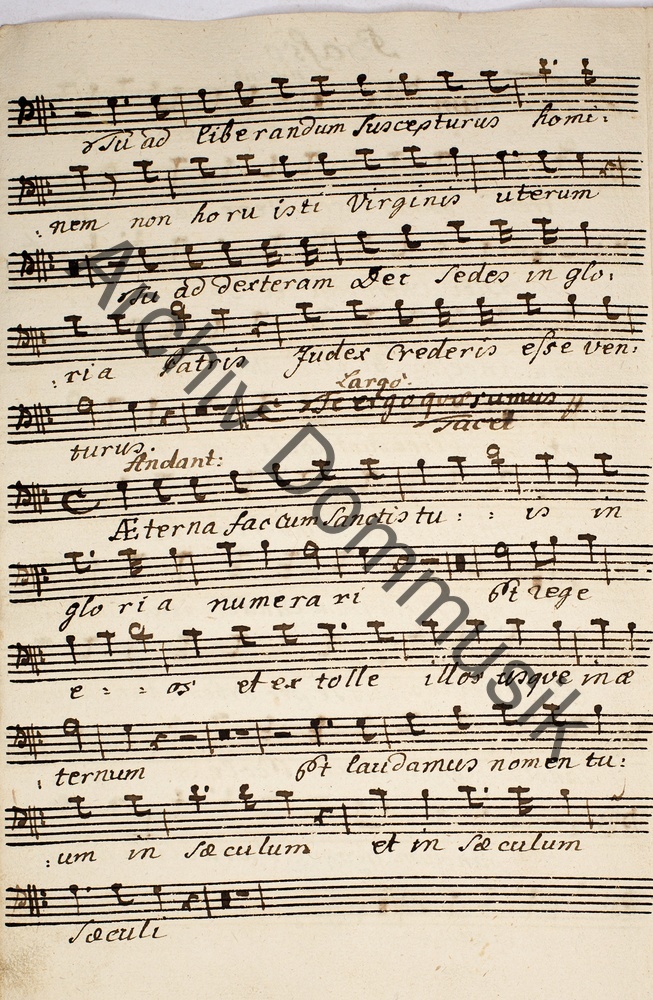 Tu ad liberandum suscepturus homi:
: nem non horuisti Virginis uterum
Tu ad dexteram Dei sedes in glo:
: ria Patris Judex Crederis esse ven:
Largo.
Te ergo quæsumus //
Tacet
turus.
Andant:
Æterna fac cum Sanctis tu : : is in
gloria numerari Et rege
e : : os et ex tolle illos usque in æ
: ternum Et laudamus nomen tu:
: um in sæculum et in sæculum
sæculi
Archiv Dommusik